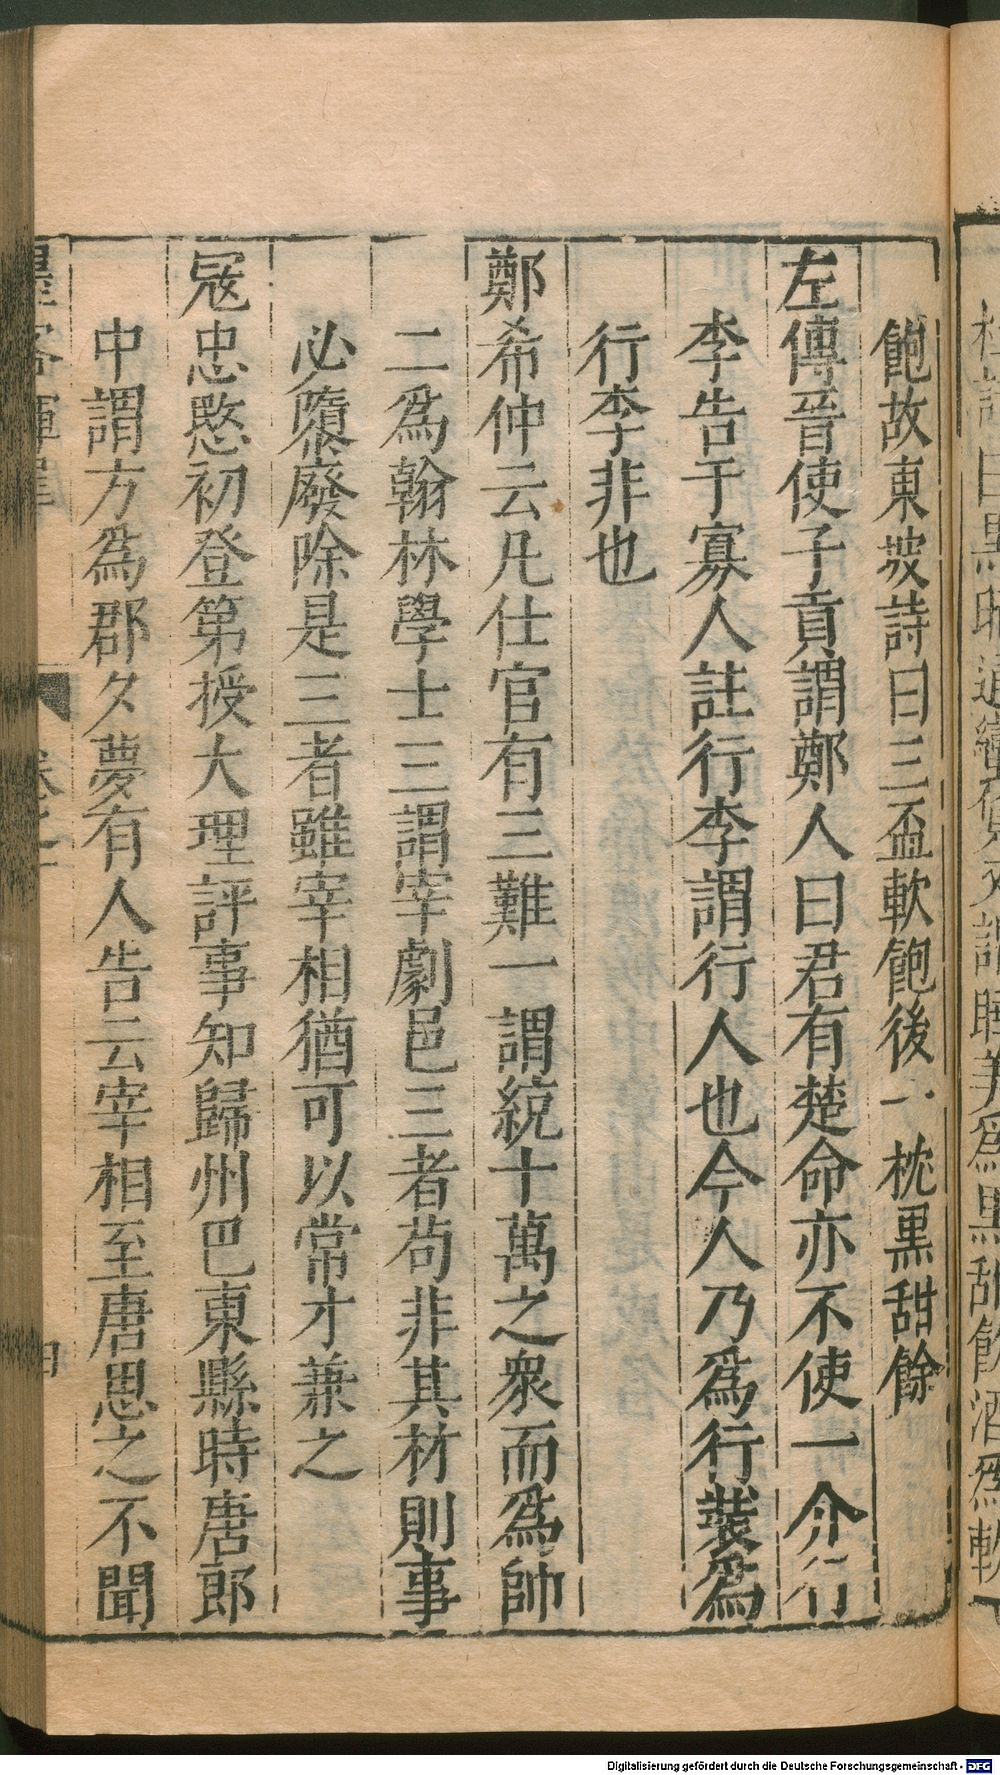 飽故東坡詩曰三盃軟飽後一枕黒甜餘
左傳晉使子貢謂鄭人曰君有楚命亦不使一介行
李告于寡人註行李謂行人也今人乃爲行裝爲
行李非也
鄭希仲云凡仕官有三難一謂統十萬之衆而爲帥
二爲翰林學士三謂宰劇邑三者茍非其材則事
必隳廢除是三者雖宰相猶可以常才兼之
宼忠愍初登第授大理評事知歸州巴東縣時唐郎
中謂方爲郡夕夢有人告云宰相至唐思之不聞
墨客揮犀
Digitalisierung gefördert durch die Deutsche Forschungsgemeinschaft - DFG